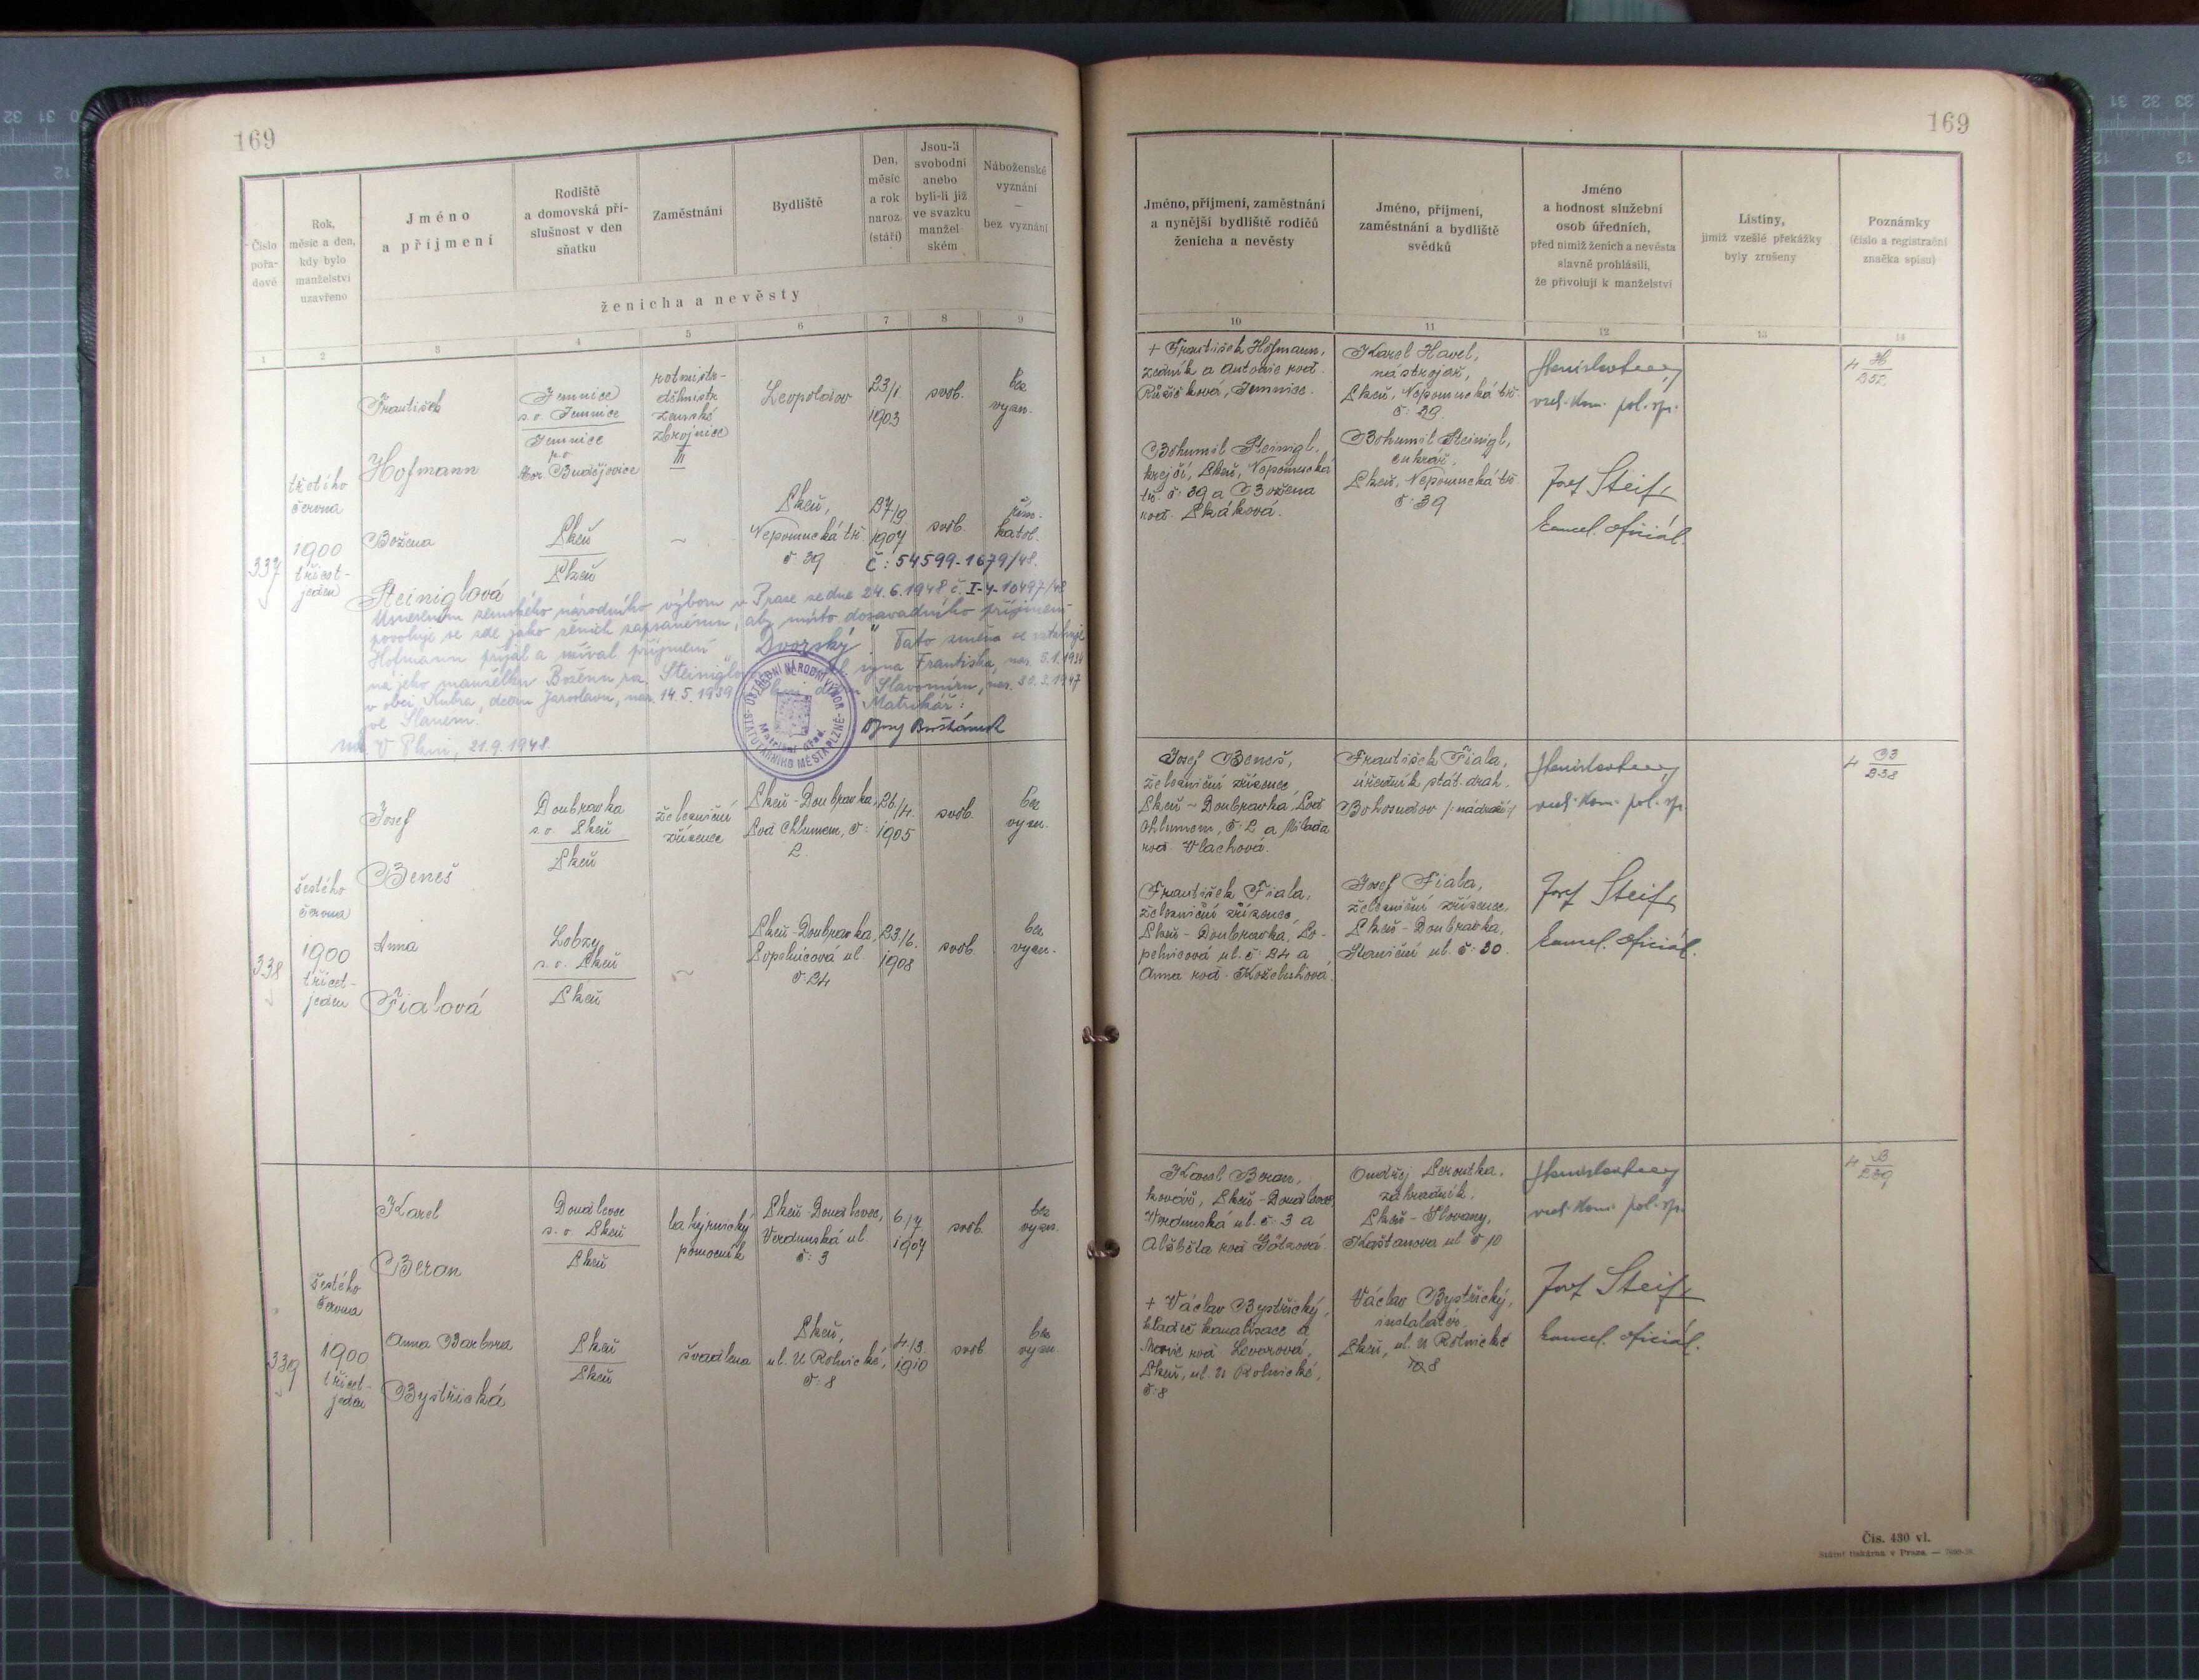 169
Číslo
pořa-
dové
Rok,
měsíc a den,
kdy bylo
manželství
uzavřeno
Jméno
a příjmení
Rodiště
a domovská pří-
slušnost v den
sňatku
Zaměstnání
Bydliště
Den,
měsíc
a rok
naroz.
(stáří)
Jsou-li
svobodni
anebo
byli-li již
ve svazku
manžel-
ském
Náboženské
vyznání
—
bez vyznání
ženicha a nevěsty
1
2
3
4
5
6
7
8
9
337
třetího
června
1900
třicet-
jeden
František
Hofmann
Jemnice
s. o. Jemnice
Jemnice
p. o.
Mor. Budějovice
rotmistr-
dílmistr
zemské
zbrojnice
III
Leopoldov
23/1.
1903
svob.
bez
vyzn.
Božena
Steiniglová
Plzeň
Plzeň
~
Plzeň,
Nepomucká tř.
č. 39
27/9.
1907
svob.
řím.
katol.
č: 54599-1679/48.
Usnesením zemského národního výboru v Praze ze dne 24.6.1948 č. I-4-10497/48
povoluje se zde jako ženich zapsanému, aby místo dosavadního příjmení
Hofmann přijal a užíval příjmení „Dvorský". Tato změna se vztahuje
na jeho manželku Boženu roz. Steiniglo syna Františka, nar. 5.1.1934
v obci Kubra, dceru Jaroslavu, nar. 14.5.1939 Slavomíru, nar. 30.3.1947
ve Slaném. Matrikář:
V Plzni, 21.9.1948.
OBJEDNÍ NÁRODNÍ VÝBOR
STATUTÁRNÍHO MĚSTA PLZNĚ
Matriční úřad.
338
šestého
června
1900
třicet-
jeden
Josef
Beneš
Doubravka
s. o. Plzeň
Plzeň
železniční
zřízenec
Plzeň-Doubravka,
Pod Chlumem, č.
2.
26/4.
1905
svob.
bez
vyzn.
Anna
Fialová
Lobzy
s. o. Plzeň
Plzeň
~
Plzeň-Doubravka,
Popelnicová ul.
č. 24
23/6.
1908
svob.
bez
vyzn.
339
šestého
června
1900
třicet-
jeden
Karel
Beran
Doudlevce
s. o. Plzeň
Plzeň
lakýrnický
pomocník
Plzeň-Doudlevce,
Verdunská ul.
č: 3
6/7
1907
svob.
bez
vyzn.
Anna Barbora
Bystřická
Plzeň
Plzeň
švadlena
Plzeň,
ul. U Rolnické,
č. 8
4/3.
1910
svob.
bez
vyzn.
169
Jméno, příjmení, zaměstnání
a nynější bydliště rodičů
ženicha a nevěsty
Jméno, příjmení,
zaměstnání a bydliště
svědků
Jméno
a hodnost služební
osob úředních,
před nimiž ženich a nevěsta
slavně prohlásili,
že přivolují k manželství
Listiny,
jimiž vzešlé překážky
byly zrušeny
Poznámky
(číslo a registrační
značka spisu)
10
11
12
13
14
+ František Hofmann,
zedník a Antonie roz.
Růžičková, Jemnice.
Karel Havel,
nástrojař,
Plzeň, Nepomucká tř.
č: 39.
vrch. kom. pol. sp.
4 H
Bohumil Steinigl,
krejčí, Plzeň, Nepomucká
tř. č. 39 a Božena
roz. Ptáková.
Bohumil Steinigl,
cukrář,
Plzeň, Nepomucká tř.
č: 39
Josef Steif
kancel. oficiál.
Josef Beneš,
železniční zřízenec,
Plzeň-Doubravka, Pod
Chlumem, č: 2 a Milada
roz. Vlachová.
František Fiala,
úředník stát. drah.
Bohosudov /:nádraží:/
vrch. kom. pol. sp.
4 B
238
František Fiala,
železniční zřízenec,
Plzeň-Doubravka, Po-
pelnicová ul. č. 24 a
Anna roz. Koželuhová.
Josef Fiala,
železniční zřízenec,
Plzeň-Doubravka,
Staniční ul. č: 30.
Josef Steif
kancel. oficiál.
Karel Beran,
kovář, Plzeň-Doudlevce,
Verdunská ul. č. 3 a
Alžběta roz. Götzová
Ondřej Peroutka,
zahradník,
Plzeň-Slovany,
Kaštanova ul. č. 10
vrch. kom. pol. sp.
4 B
239
+ Václav Bystřický,
kladeč kanalisace a
Marie roz. Levorová,
Plzeň, ul. U Rolnické,
č: 8
Václav Bystřický,
instalatér,
Plzeň, ul. U Rolnické
č. 8
Josef Steif
kancel. oficiál.
Čís. 430 vl.
Státní tiskárna v Praze.